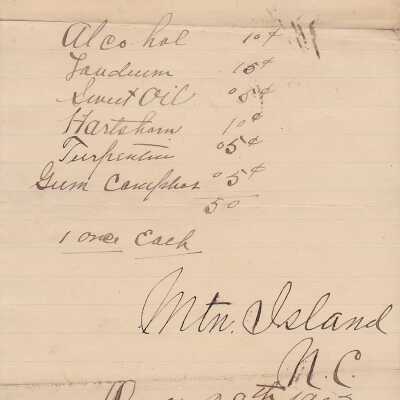 Alcohol 10¢
Laudnum 15¢
Sweet Oil 05¢
Hartshorn 10¢
Turpentine 05¢
Gum Camphor 05¢
50
1 once Each
Mtn. Island
N. C.